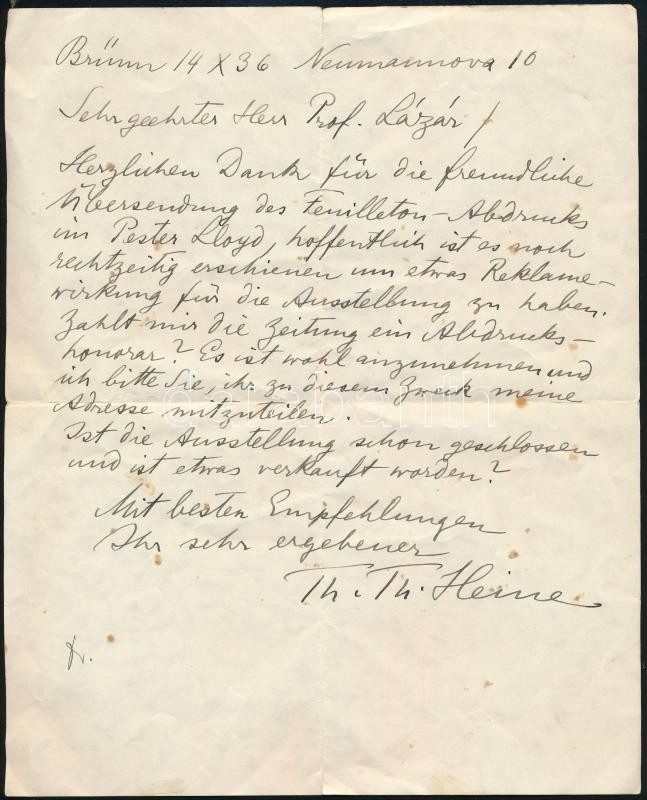 Brünn 14 X 36 Neumannova 10
Sehr geehrter Herr Prof. Lázár!
Herzlichen Dank für die freundliche
Übersendung des Feuilleton-Abdrucks
im Pester Lloyd, hoffentlich ist es noch
rechtzeitig erschienen um etwas Reklame-
wirkung für die Ausstellung zu haben.
Zahlt mir die Zeitung ein Abdrucks-
honorar? Es ist wohl anzunehmen und
ich bitte Sie, ihr zu diesem Zweck meine
Adresse mitzuteilen.
Ist die Ausstellung schon geschlossen
und ist etwas verkauft worden?
Mit besten Empfehlungen
Ihr sehr ergebener
Th. Th. Heine